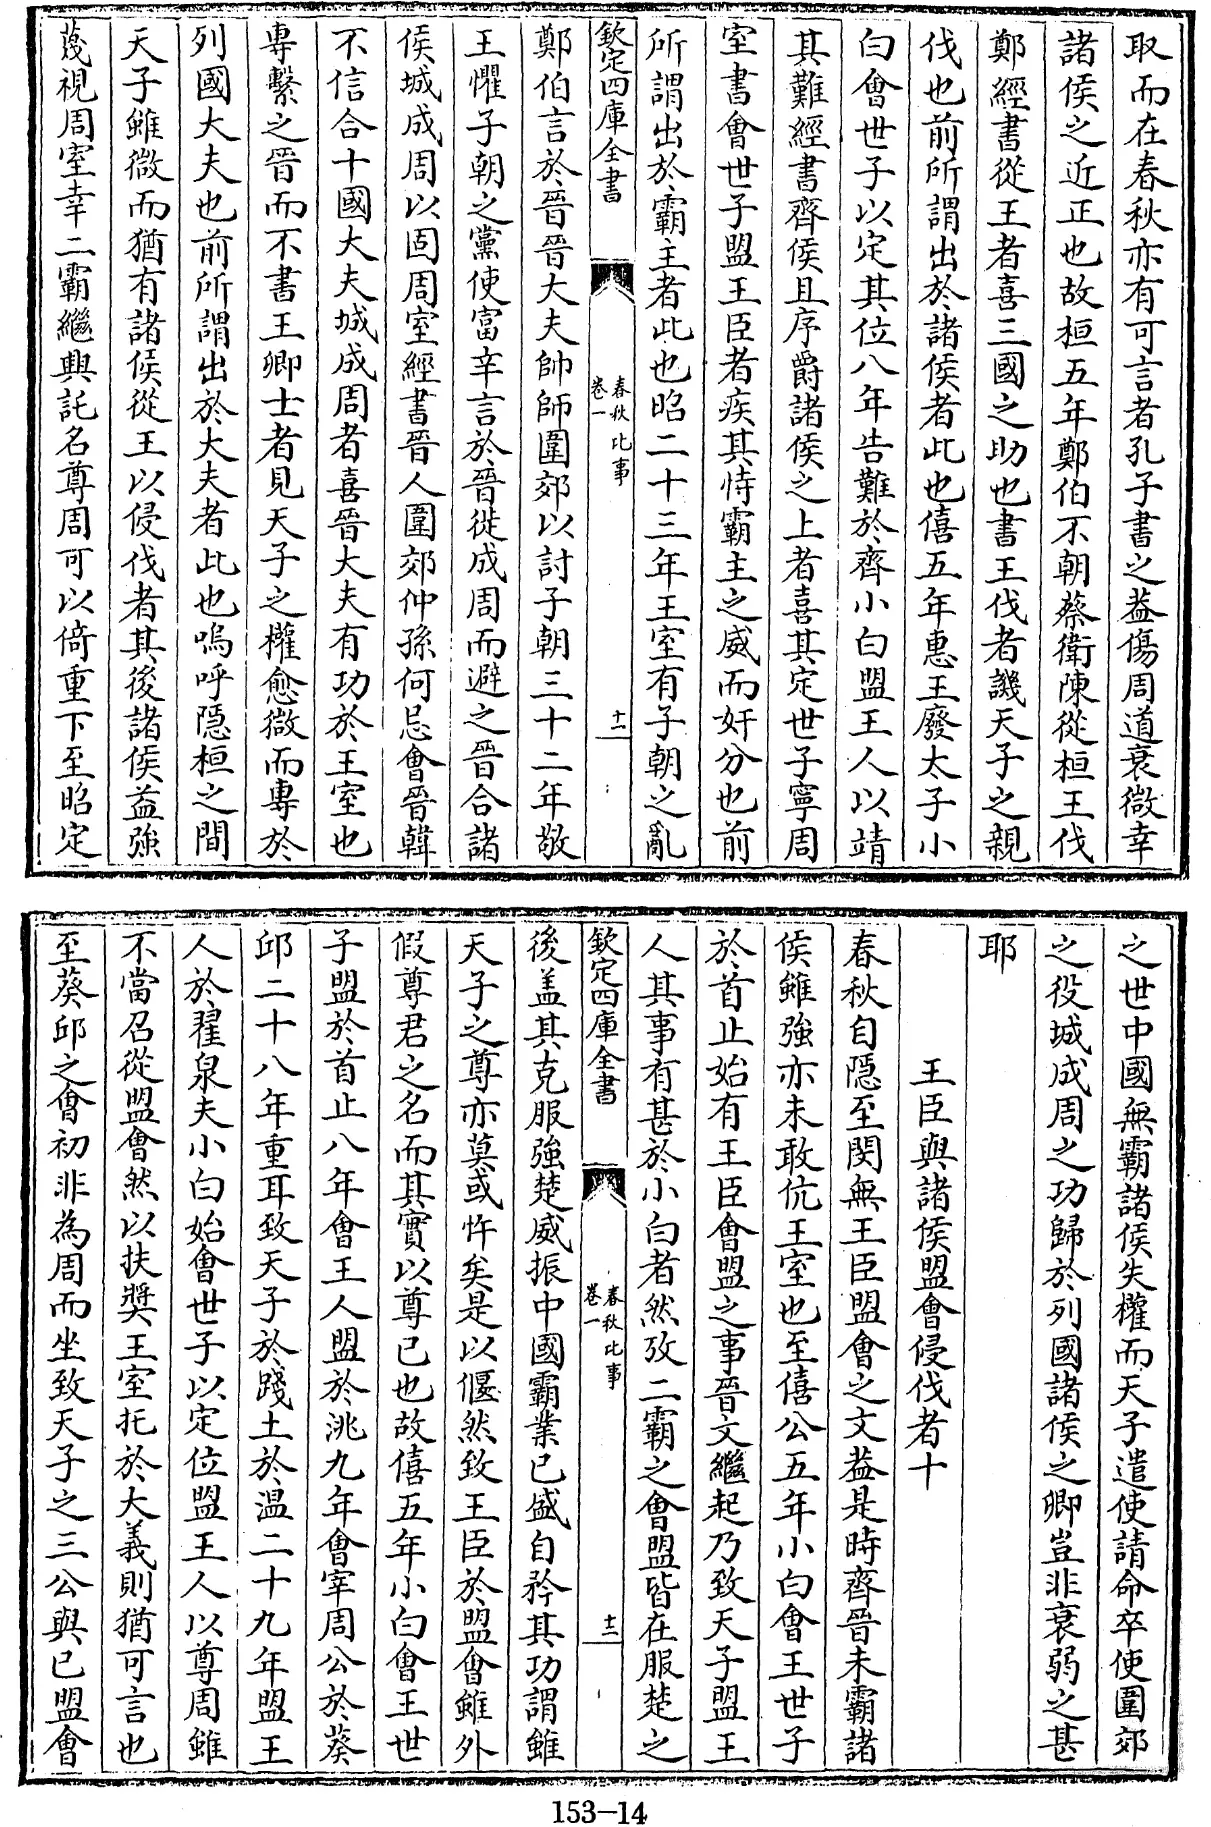 取而在春秋亦有可言者孔子書之葢傷周道衰微幸
諸侯之近正也故桓五年鄭伯不朝蔡衛陳從桓王伐
鄭經書從王者喜三國之助也書王伐者譏天子之親
伐也前所謂出於諸侯者此也僖五年惠王廢太子小
白會世子以定其位八年告難於齊小白盟王人以靖
其難經書齊侯且序爵諸侯之上者喜其定世子寧周
室書會世子盟王臣者疾其恃霸主之威而奸分也前
所謂出於霸主者此也昭二十三年王室有子朝之亂
欽定四庫全書
春秋比事
卷一
十一
鄭伯言於晉晉大夫帥師圍郊以討子朝三十二年敬
王懼子朝之黨使富辛言於晉徙成周而避之晉合諸
侯城成周以固周室經書晉人圍郊仲孫何忌會晉韓
不信合十國大夫城成周者喜晉大夫有功於王室也
專繫之晉而不書王卿士者見天子之權愈微而專於
列國大夫也前所謂出於大夫者此也嗚呼隱桓之間
天子雖微而猶有諸侯從王以侵伐者其後諸侯益強
蔑視周室幸二霸繼興託名尊周可以倚重下至昭定
之世中國無霸諸侯失權而天子遣使請命卒使圍郊
之役城成周之功歸於列國諸侯之卿豈非衰弱之甚
耶
王臣與諸侯盟會侵伐者十
春秋自隱至閔無王臣盟會之文葢是時齊晉未霸諸
侯雖強亦未敢伉王室也至僖公五年小白會王世子
於首止始有王臣會盟之事晉文繼起乃致天子盟王
人其事有甚於小白者然攷二霸之會盟皆在服楚之
欽定四庫全書
春秋比事
卷一
十二
後盖其克服強楚威振中國霸業已盛自矜其功謂雖
天子之尊亦莫或忤矣是以偃然致王臣於盟會雖外
假尊君之名而其實以尊已也故僖五年小白會王世
子盟於首止八年會王人盟於洮九年會宰周公於葵
邱二十八年重耳致天子於踐土於溫二十九年盟王
人於翟泉夫小白始會世子以定位盟王人以尊周雖
不當召從盟會然以扶奬王室托於大義則猶可言也
至葵邱之會初非為周而坐致天子之三公與已盟會
153-14